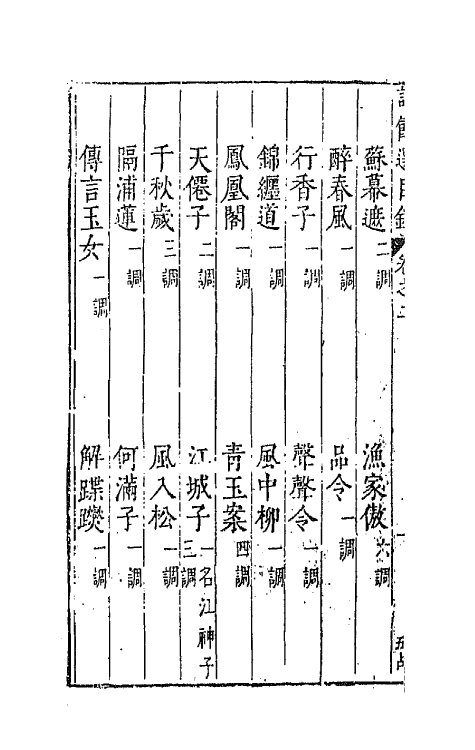 蘇幕遮二調 漁家傲六調
醉春風一調 品令一調
行香子一調 聲聲令一調
錦纏道一調 風中柳一調
鳳凰閣一調 青玉案四調
天僊子二調 江城子一名江神子三調
千秋歲三調 風入松一調
隔浦蓮一調 何滿子一調
傳言玉女一調 解蹀躞一調